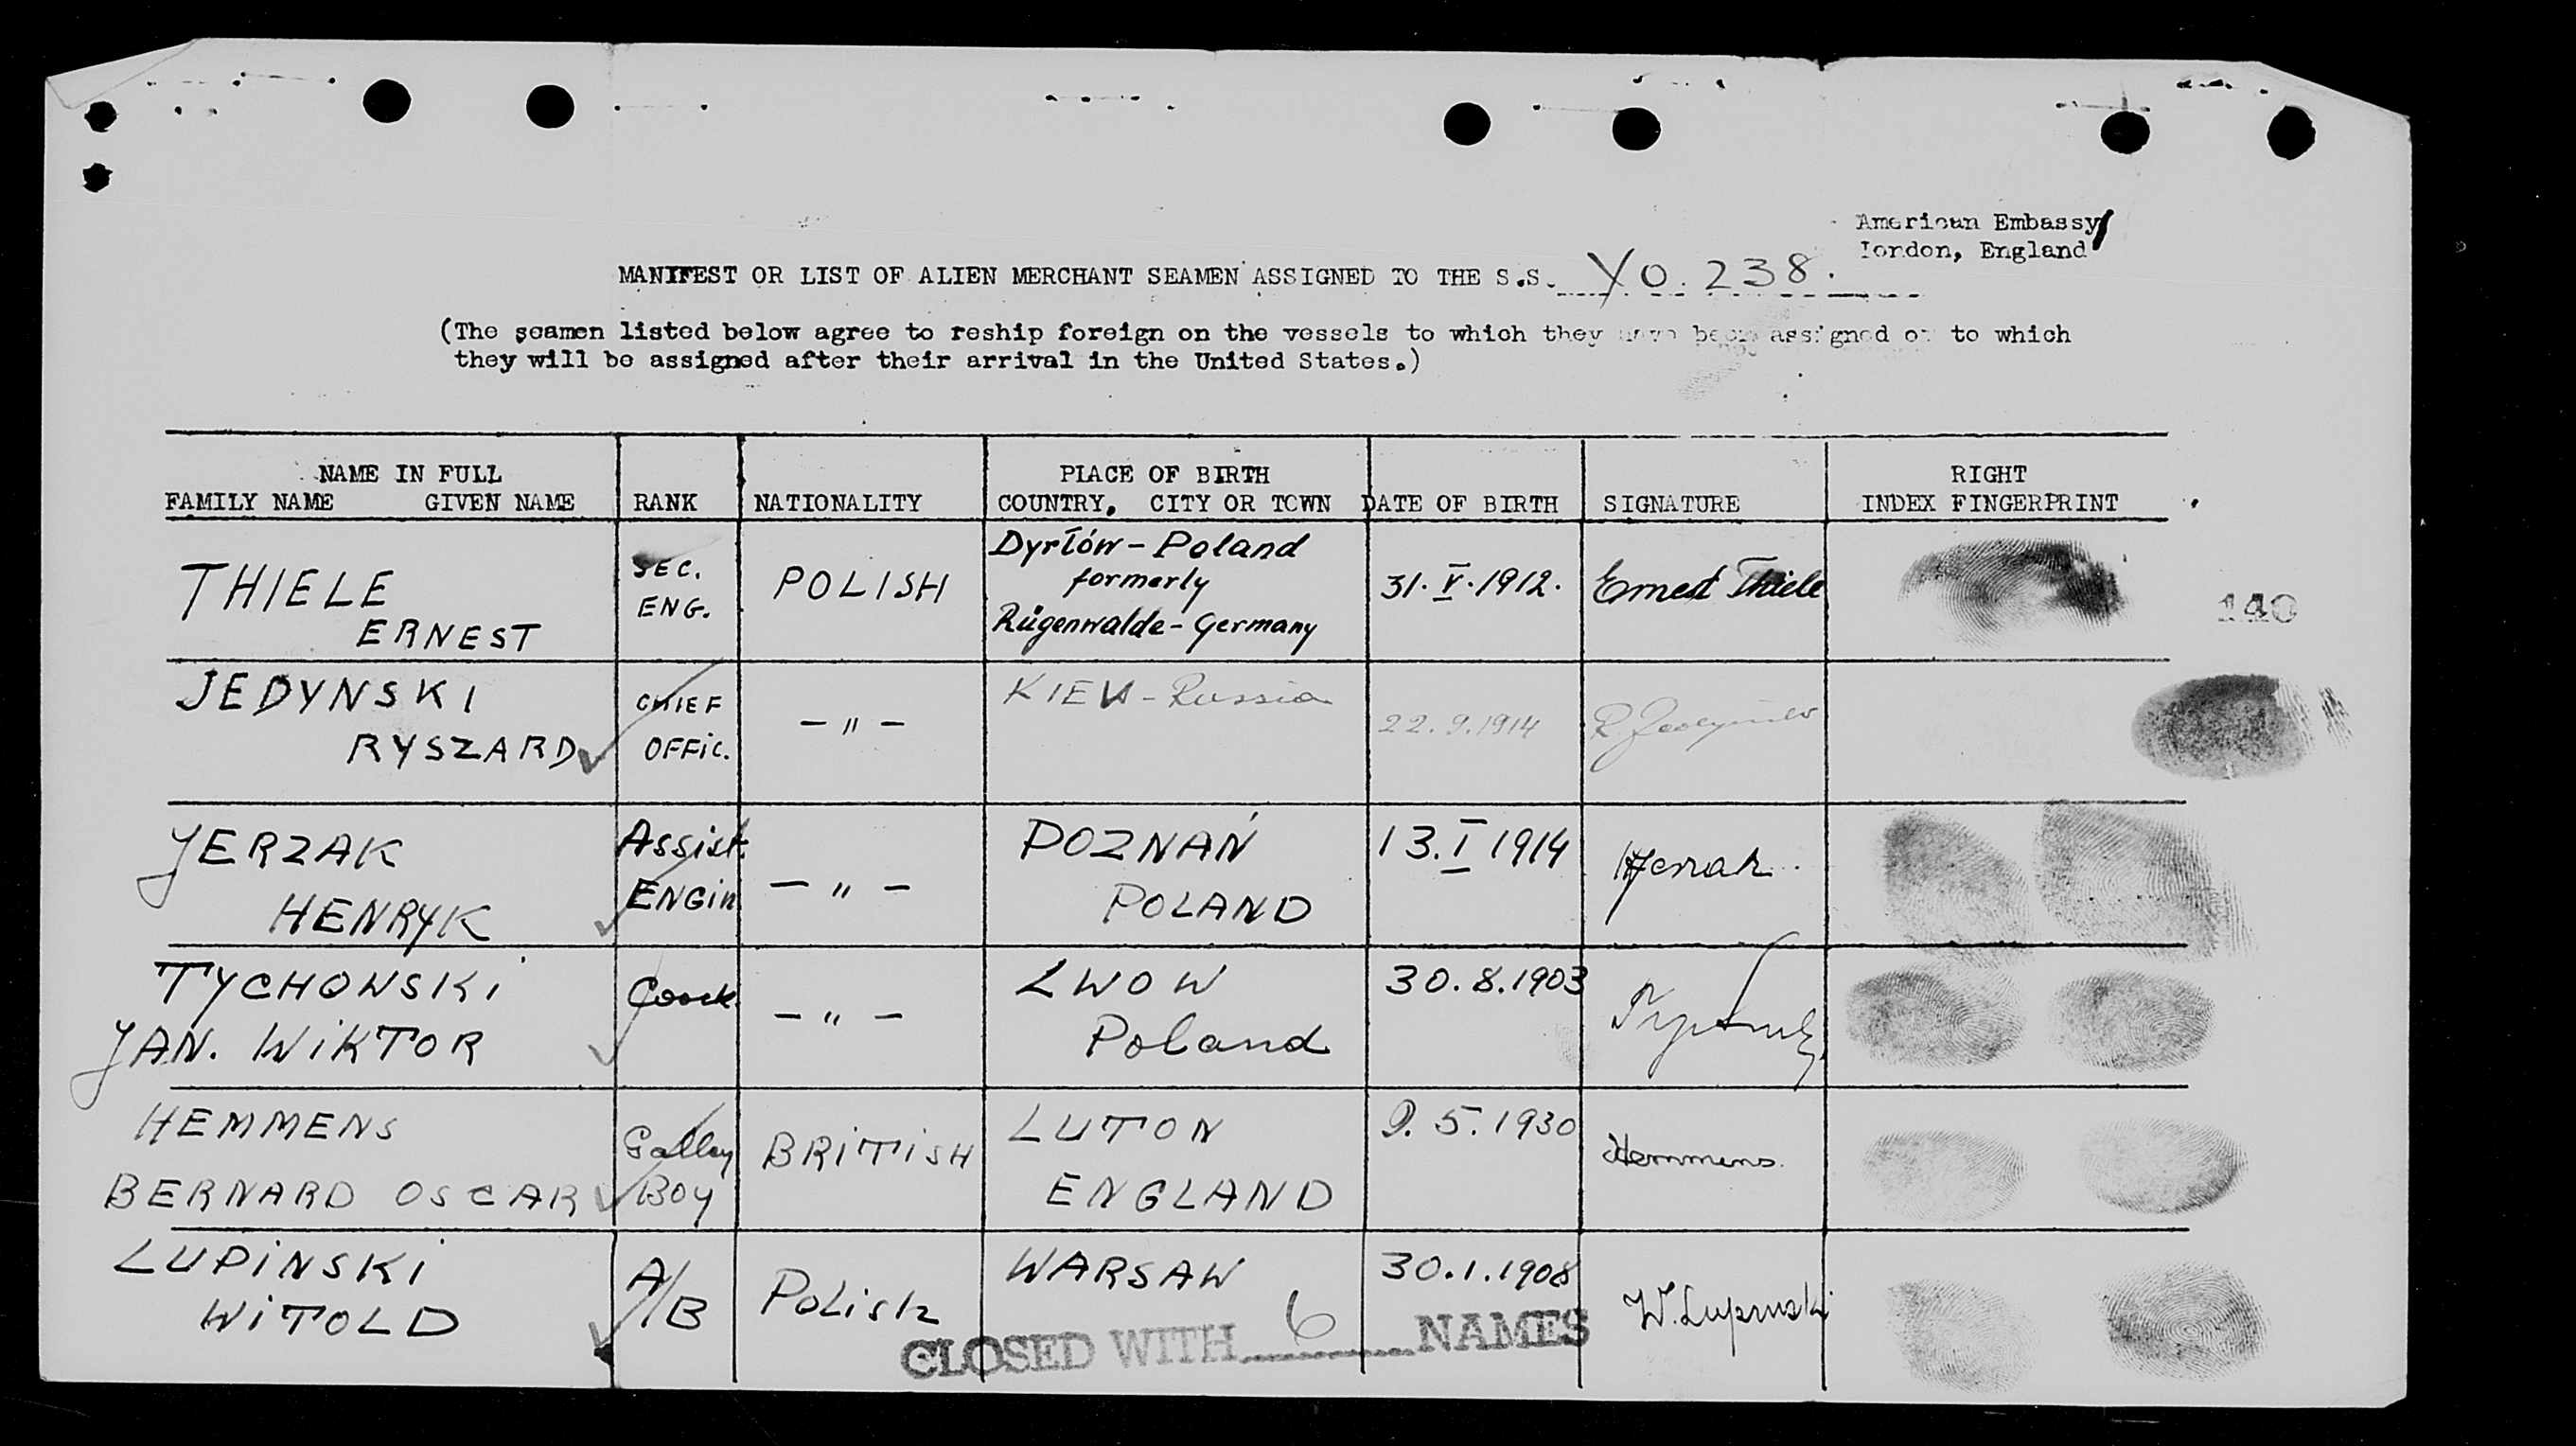 American Embassy
London, England
MANIFEST OR LIST OF ALIEN MERCHANT SEAMEN ASSIGNED TO THE S.S. YO. 238.
(The seamen listed below agree to reship foreign on the vessels to which they have been assigned or to which
they will be assigned after their arrival in the United States.)
NAME IN FULL PLACE OF BIRTH RIGHT
FAMILY NAME GIVEN NAME RANK NATIONALITY COUNTRY, CITY OR TOWN DATE OF BIRTH SIGNATURE INDEX FINGERPRINT
Dyrłów - Poland
THIELE SEC. POLISH formerly 31. V. 1912. Ernest Thiele
ERNEST ENG. Rügenwalde - Germany
140
JEDYNSKI CHIEF - " - KIEV - Russia 22.9.1914
RYSZARD OFFiC.
JERZAK Assist. - " - POZNAŃ 13. I 1914 HJerzak
HENRYK ENGin POLAND
TYCHOWSKi Coock - " - LWOW 30.8.1903
JAN. WiKTOR Poland
HEMMENS Galley BRiTiSH LUTON 9. 5. 1930 Hemmens.
BERNARD OSCAR Boy ENGLAND
LUPiNSKi A/B Polish WARSAW 30.1.1908 W. Lupinski
WiTOLD
CLOSED WITH 6 NAMES